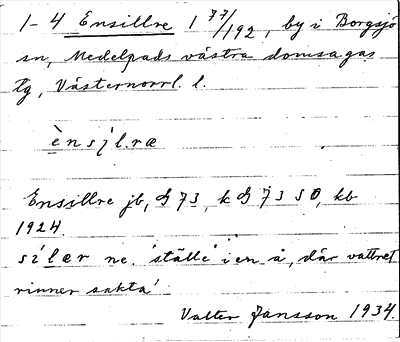 1-4 Ensillre 1 77/192, by i Borgsjö
sn, Medelpads västra domsagas
tg, Västernorrl. l.
ènsịl.ræ
Ensillre jb, G 73, k G 7350, kb
1924.
sìlær ne. 'ställe i en å, där vattnet
rinner sakta'
Valter Jansson 1934.